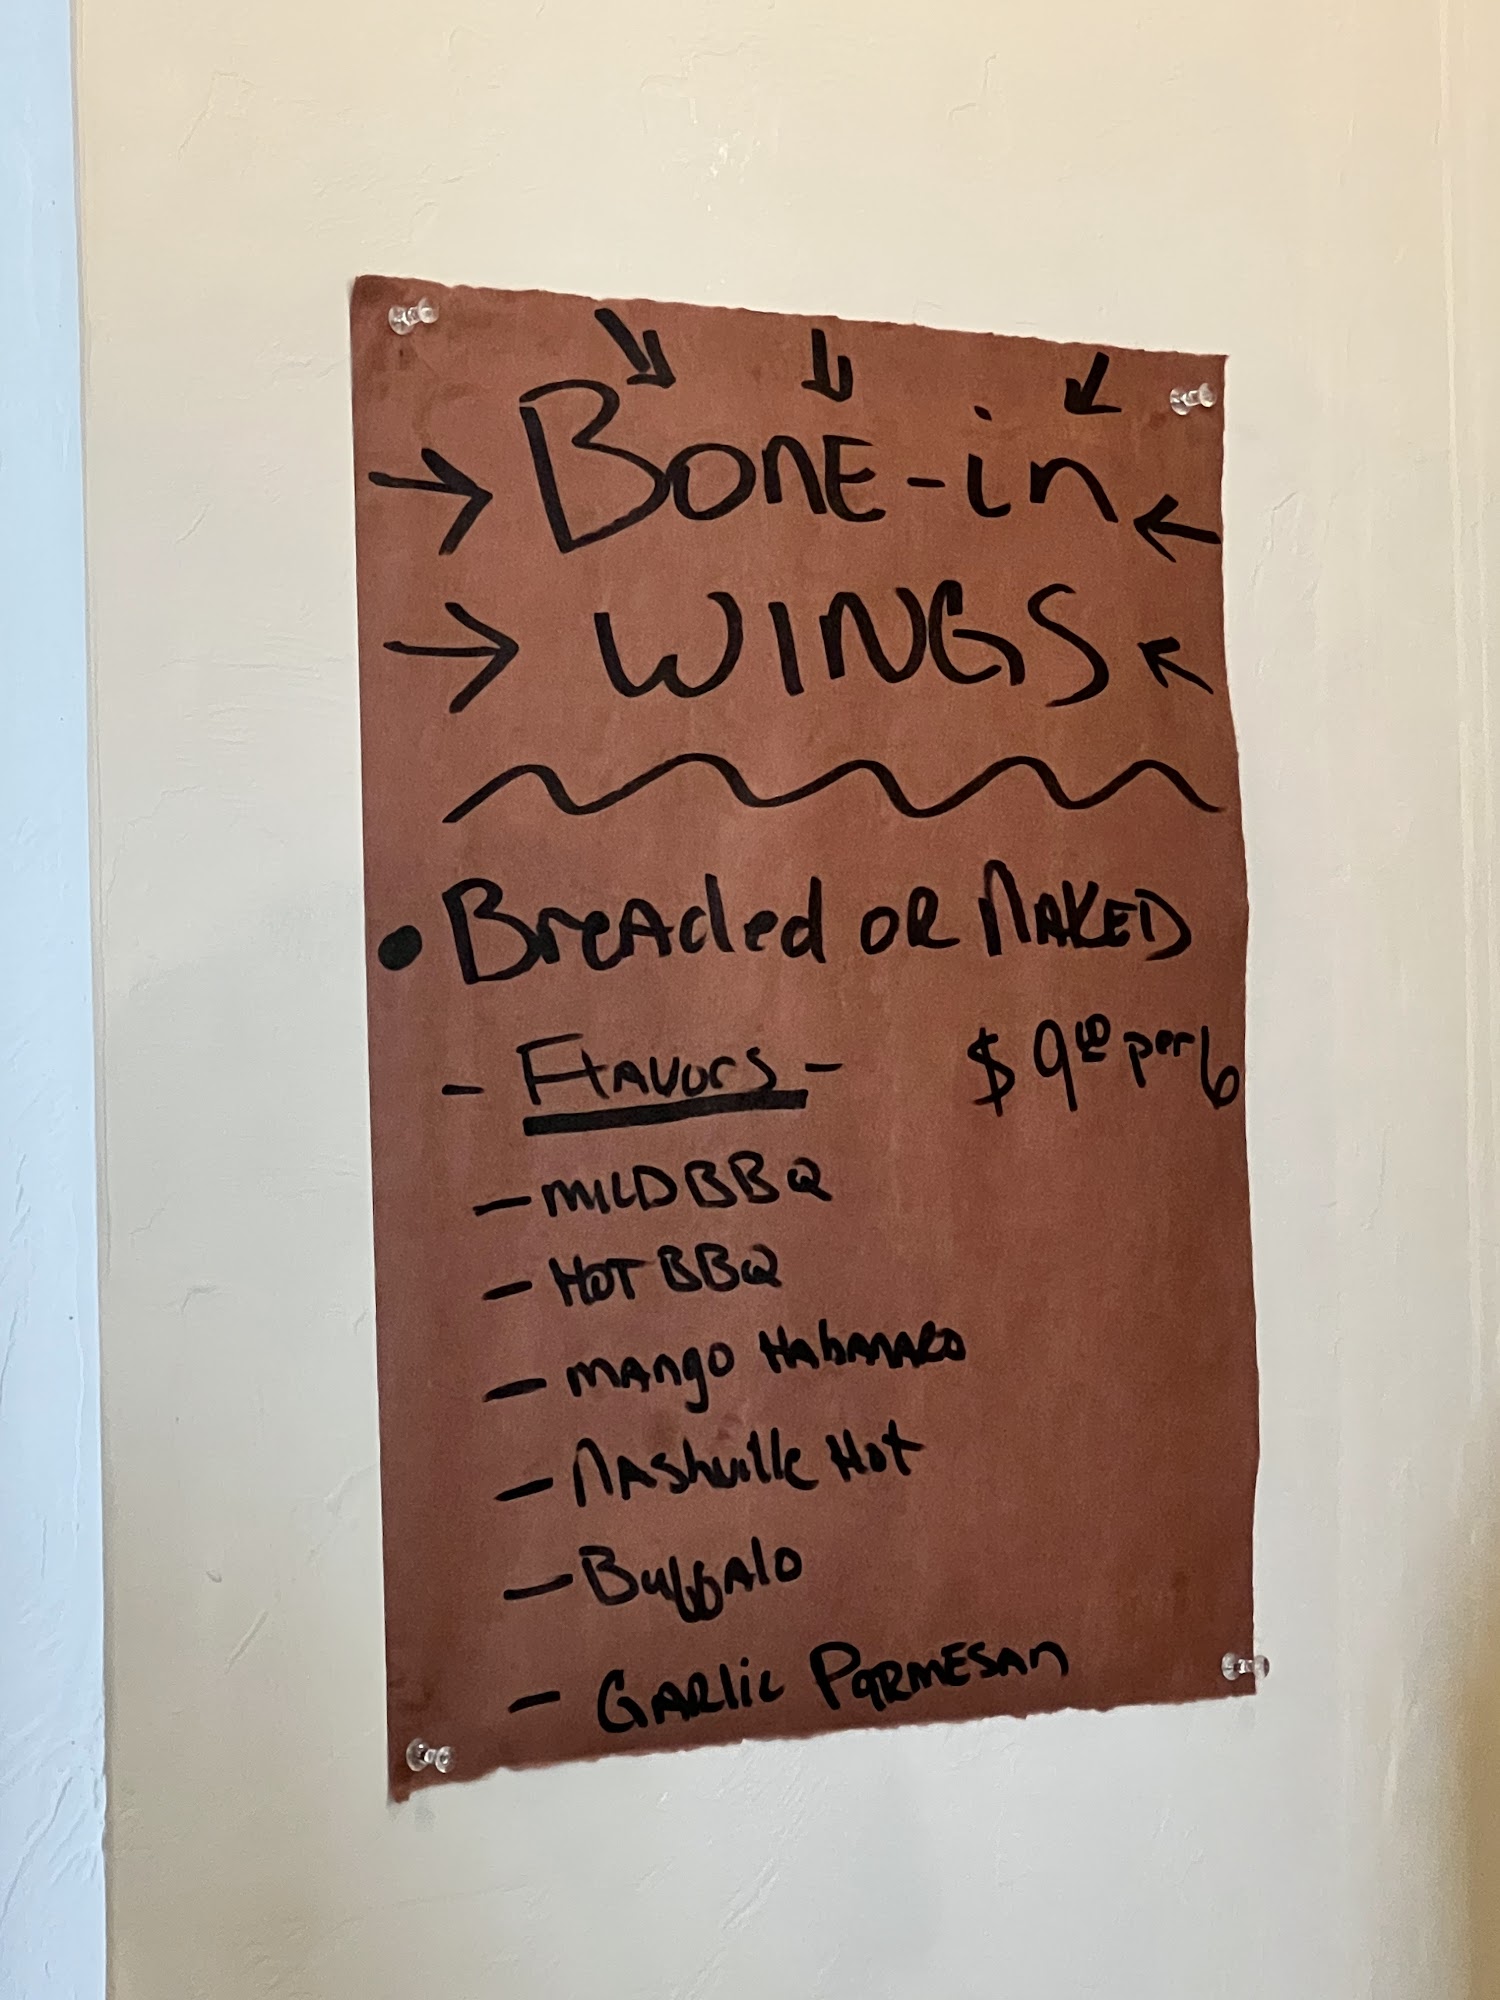 BonE-in
WINGS
• BreAded OR NAKED
- FlAvors -
$9.00 per 6
- MILD BBQ
- HOT BBQ
- MANgo HAbANARO
- NAShville Hot
- BuffAlo
- GARlic PARMESAN